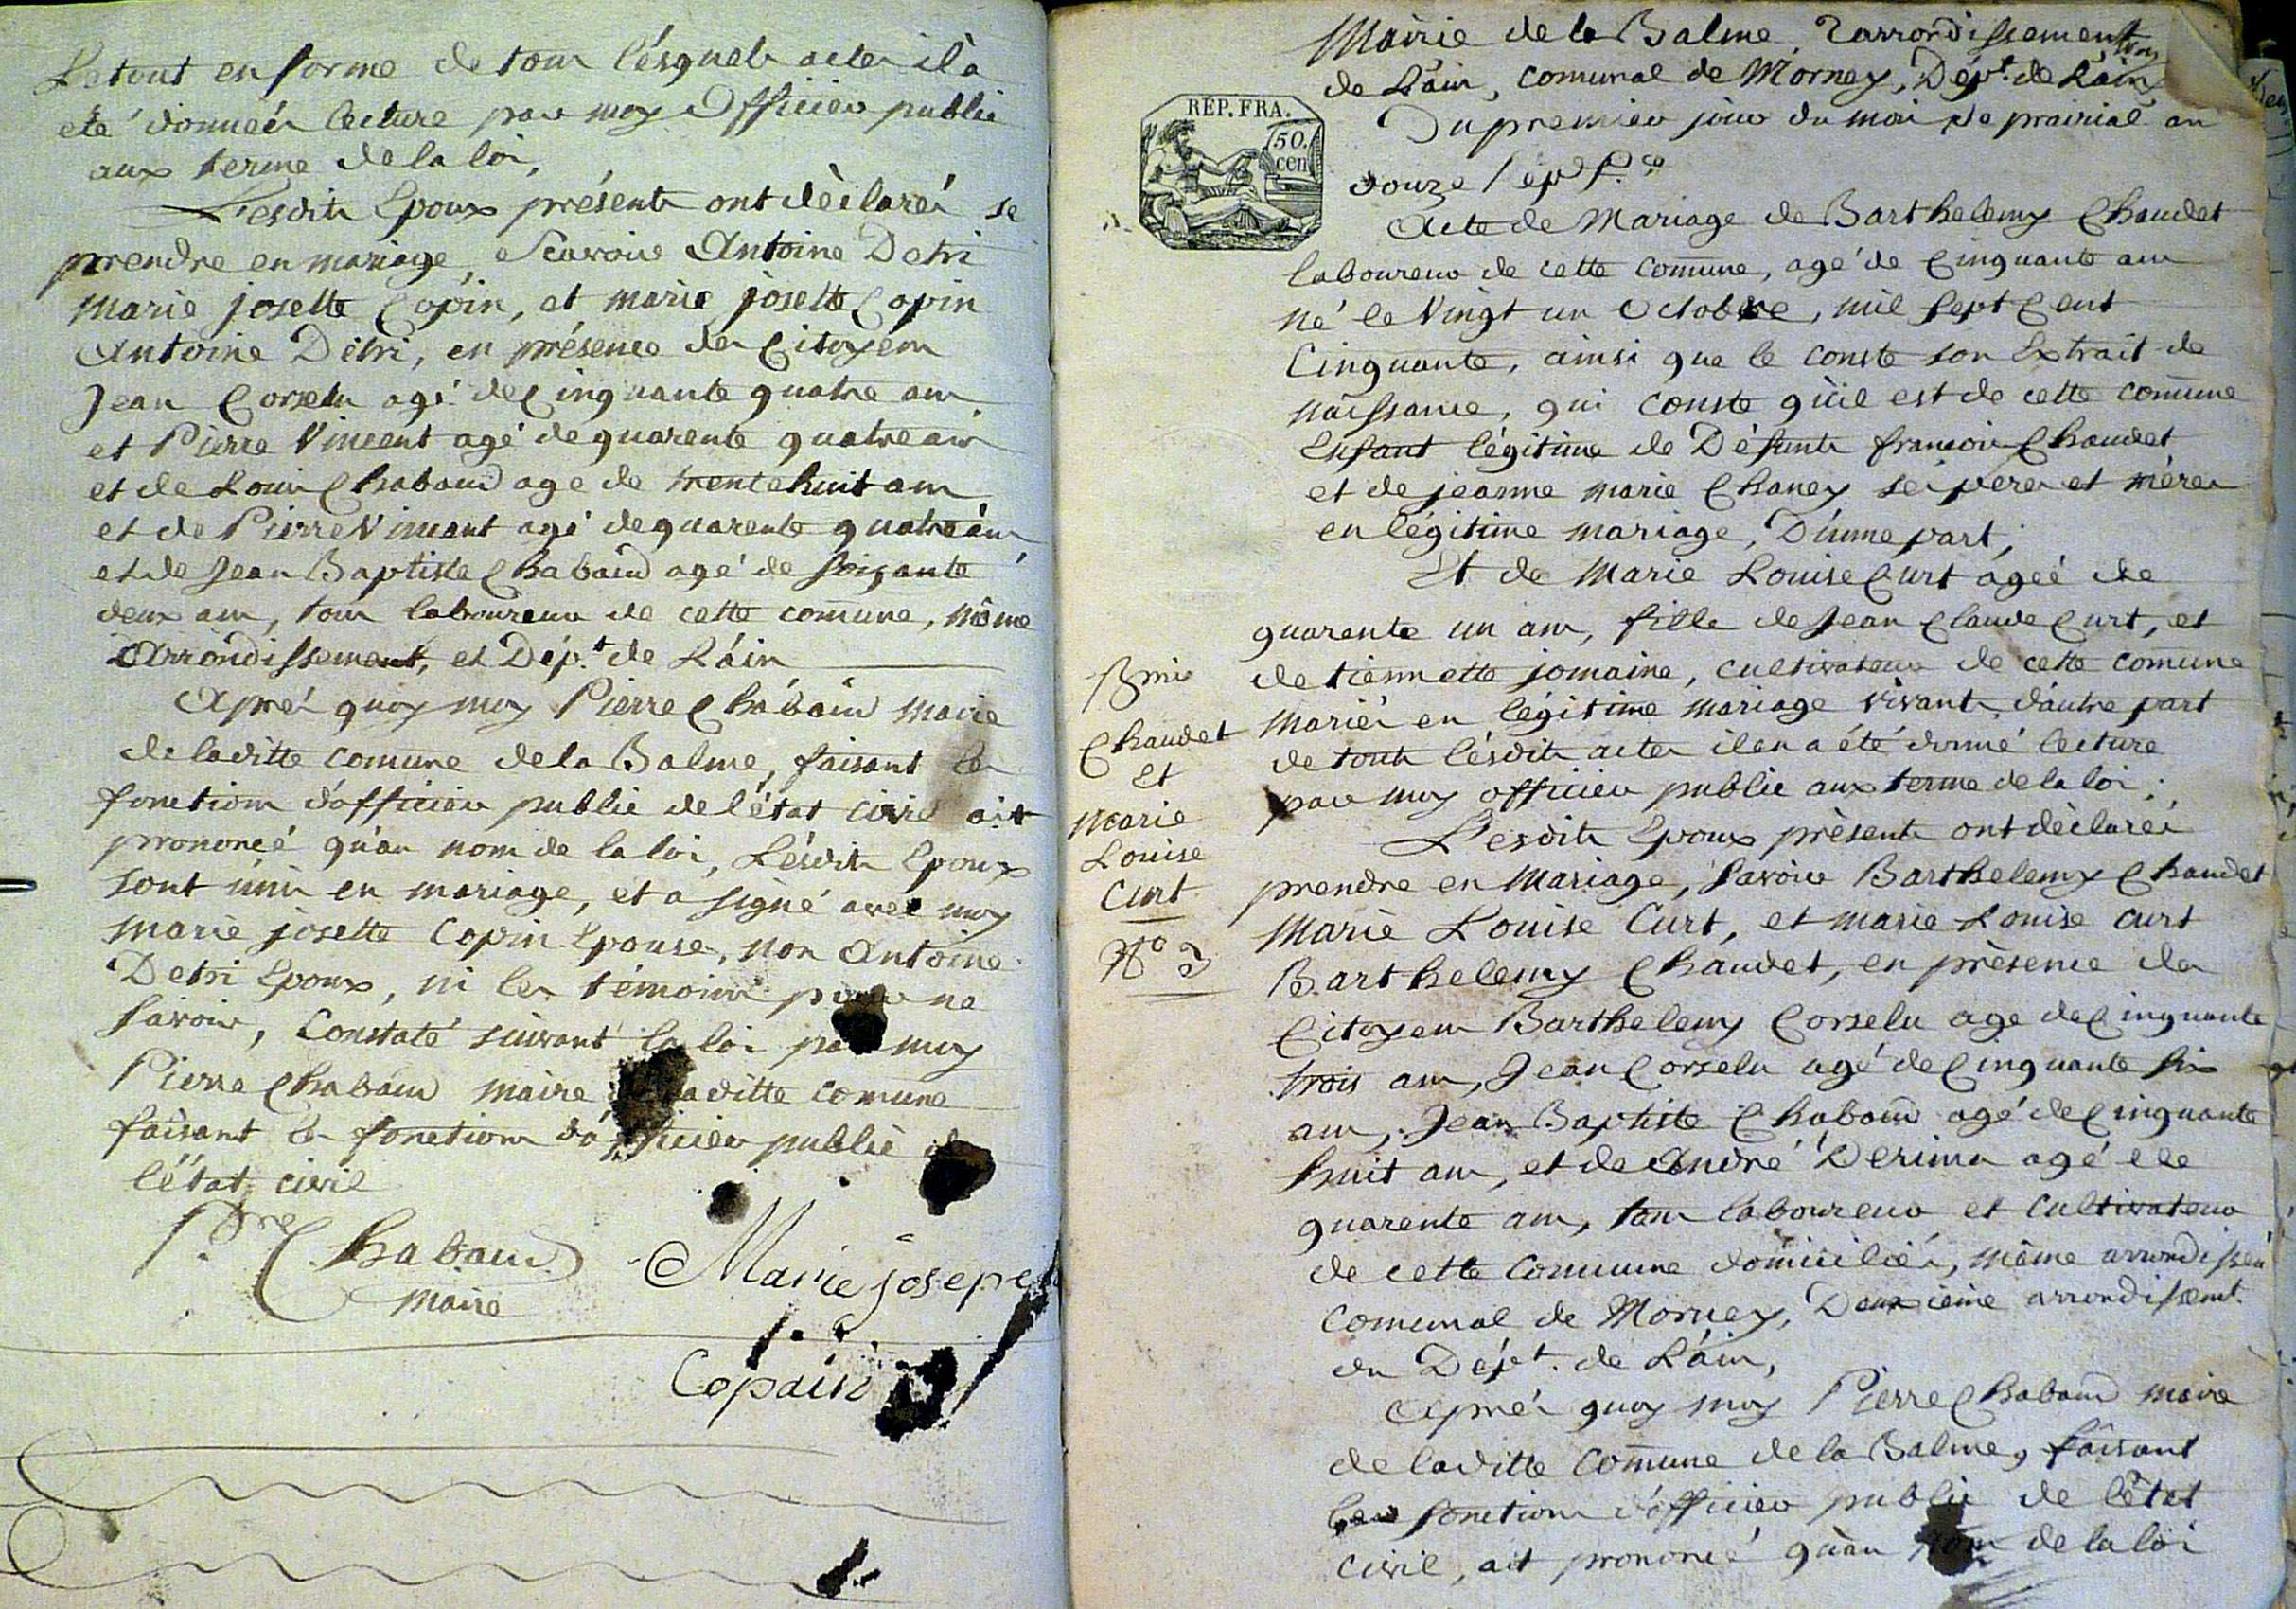 Le tout en forme de tous lésquels actes il à
eté donnés lecture par moy Officier public
aux terme de la loi,
Lesdits Epoux présents ont dèclarés se
prendre en mariage, Scavoir Antoine Detri
marie josette Copin, et marie josette Copin
Antoine Détri, en présence des Citoyens
Jean Corselu agé de Cinquante quatre ans
et Pierre Vincent agé de quarente quatre ans
et de Louis Chabaud age de trente huit ans
et de Pierre Vincent agé de quarente quatre ans
et de Jean Baptiste Chabaud agé de soixante
deux ans, tous laboureurs de cette comune, même
Arrondissement, et Dép.t de L'áin
Aprés quoy moy Pierre Chabaud maire
de laditte comune de la Balme, faisant les
fonctions d'officier public de l'état civil ait
prononcé qu'au nom de la loi, Lésdits Epoux
sont unis en mariage, et a signé avec moy
marie josette Copin Epouse, non Antoine
Detri Epoux, ni les témoins pour ne
savoir, Constaté suivant la loi par moy
Pierre Chabaud maire de laditte comune
faisant les fonctions d'officier public de
l'état civil
P.re Chabaud
maire
Marie josepe
Copain
Mairie de la Balme, 2 arrondissement
de L'ain, comunal de Mornay, Dép.t de L'ain
REP. FRA.
50.
cen
Du premier jour du mois de prairial an
douze
Acte de Mariage de Barthelemy Chaudet
laboureur de cette comune, agé de Cinquante ans
né le Vingt un Octobre, mil sept Cent
Cinquante, ainsi que le conste son Extrait de
naissance, qui conste qu'il est de cette comune
Enfant légitime de Défunts francois Chaudet
et de jeanne marie Chaney ses peres et mères
en légitime mariage, D'unne part,
Et de Marie Louise Curt ageé de
quarente un ans, fille de Jean Claude Curt, et
de tiennette jomaine, cultivateurs de cette comune
mariés en légitime mariage vivants, d'autre part
de touts lésdits actes il en a été donné lecture
par moy officier public aux terme de la loi.
Bmi
Chaudet
Et
Marie
Louise
Curt
N° 3
Lesdits Epoux présents ont dèclarés
prendre en Mariage, Savoir Barthelemy Chaudet
Marie Louise Curt, et marie Louise curt
Barthelemy Chaudet, en présence des
Citoyens Barthelemy Corselu age de Cinquante
trois ans, Jean Corselu agé de Cinquante six
ans, Jean Baptiste Chabaud agé de Cinquante
huit ans, et de André Derimn agé de
quarente ans, tous laboureurs et cultivateurs
de cette Comune domiciliés, même arrondissem
comunal de Mornay, Deuxieme arrondissemt.
du Dépt. de L'ain,
Aprés quoy moy Pierre Chabaud maire
de laditte Comune de la Balme, faisant
les fonctions d'officier public de l'état
civil, ait prononcé qu'au nom de la loi